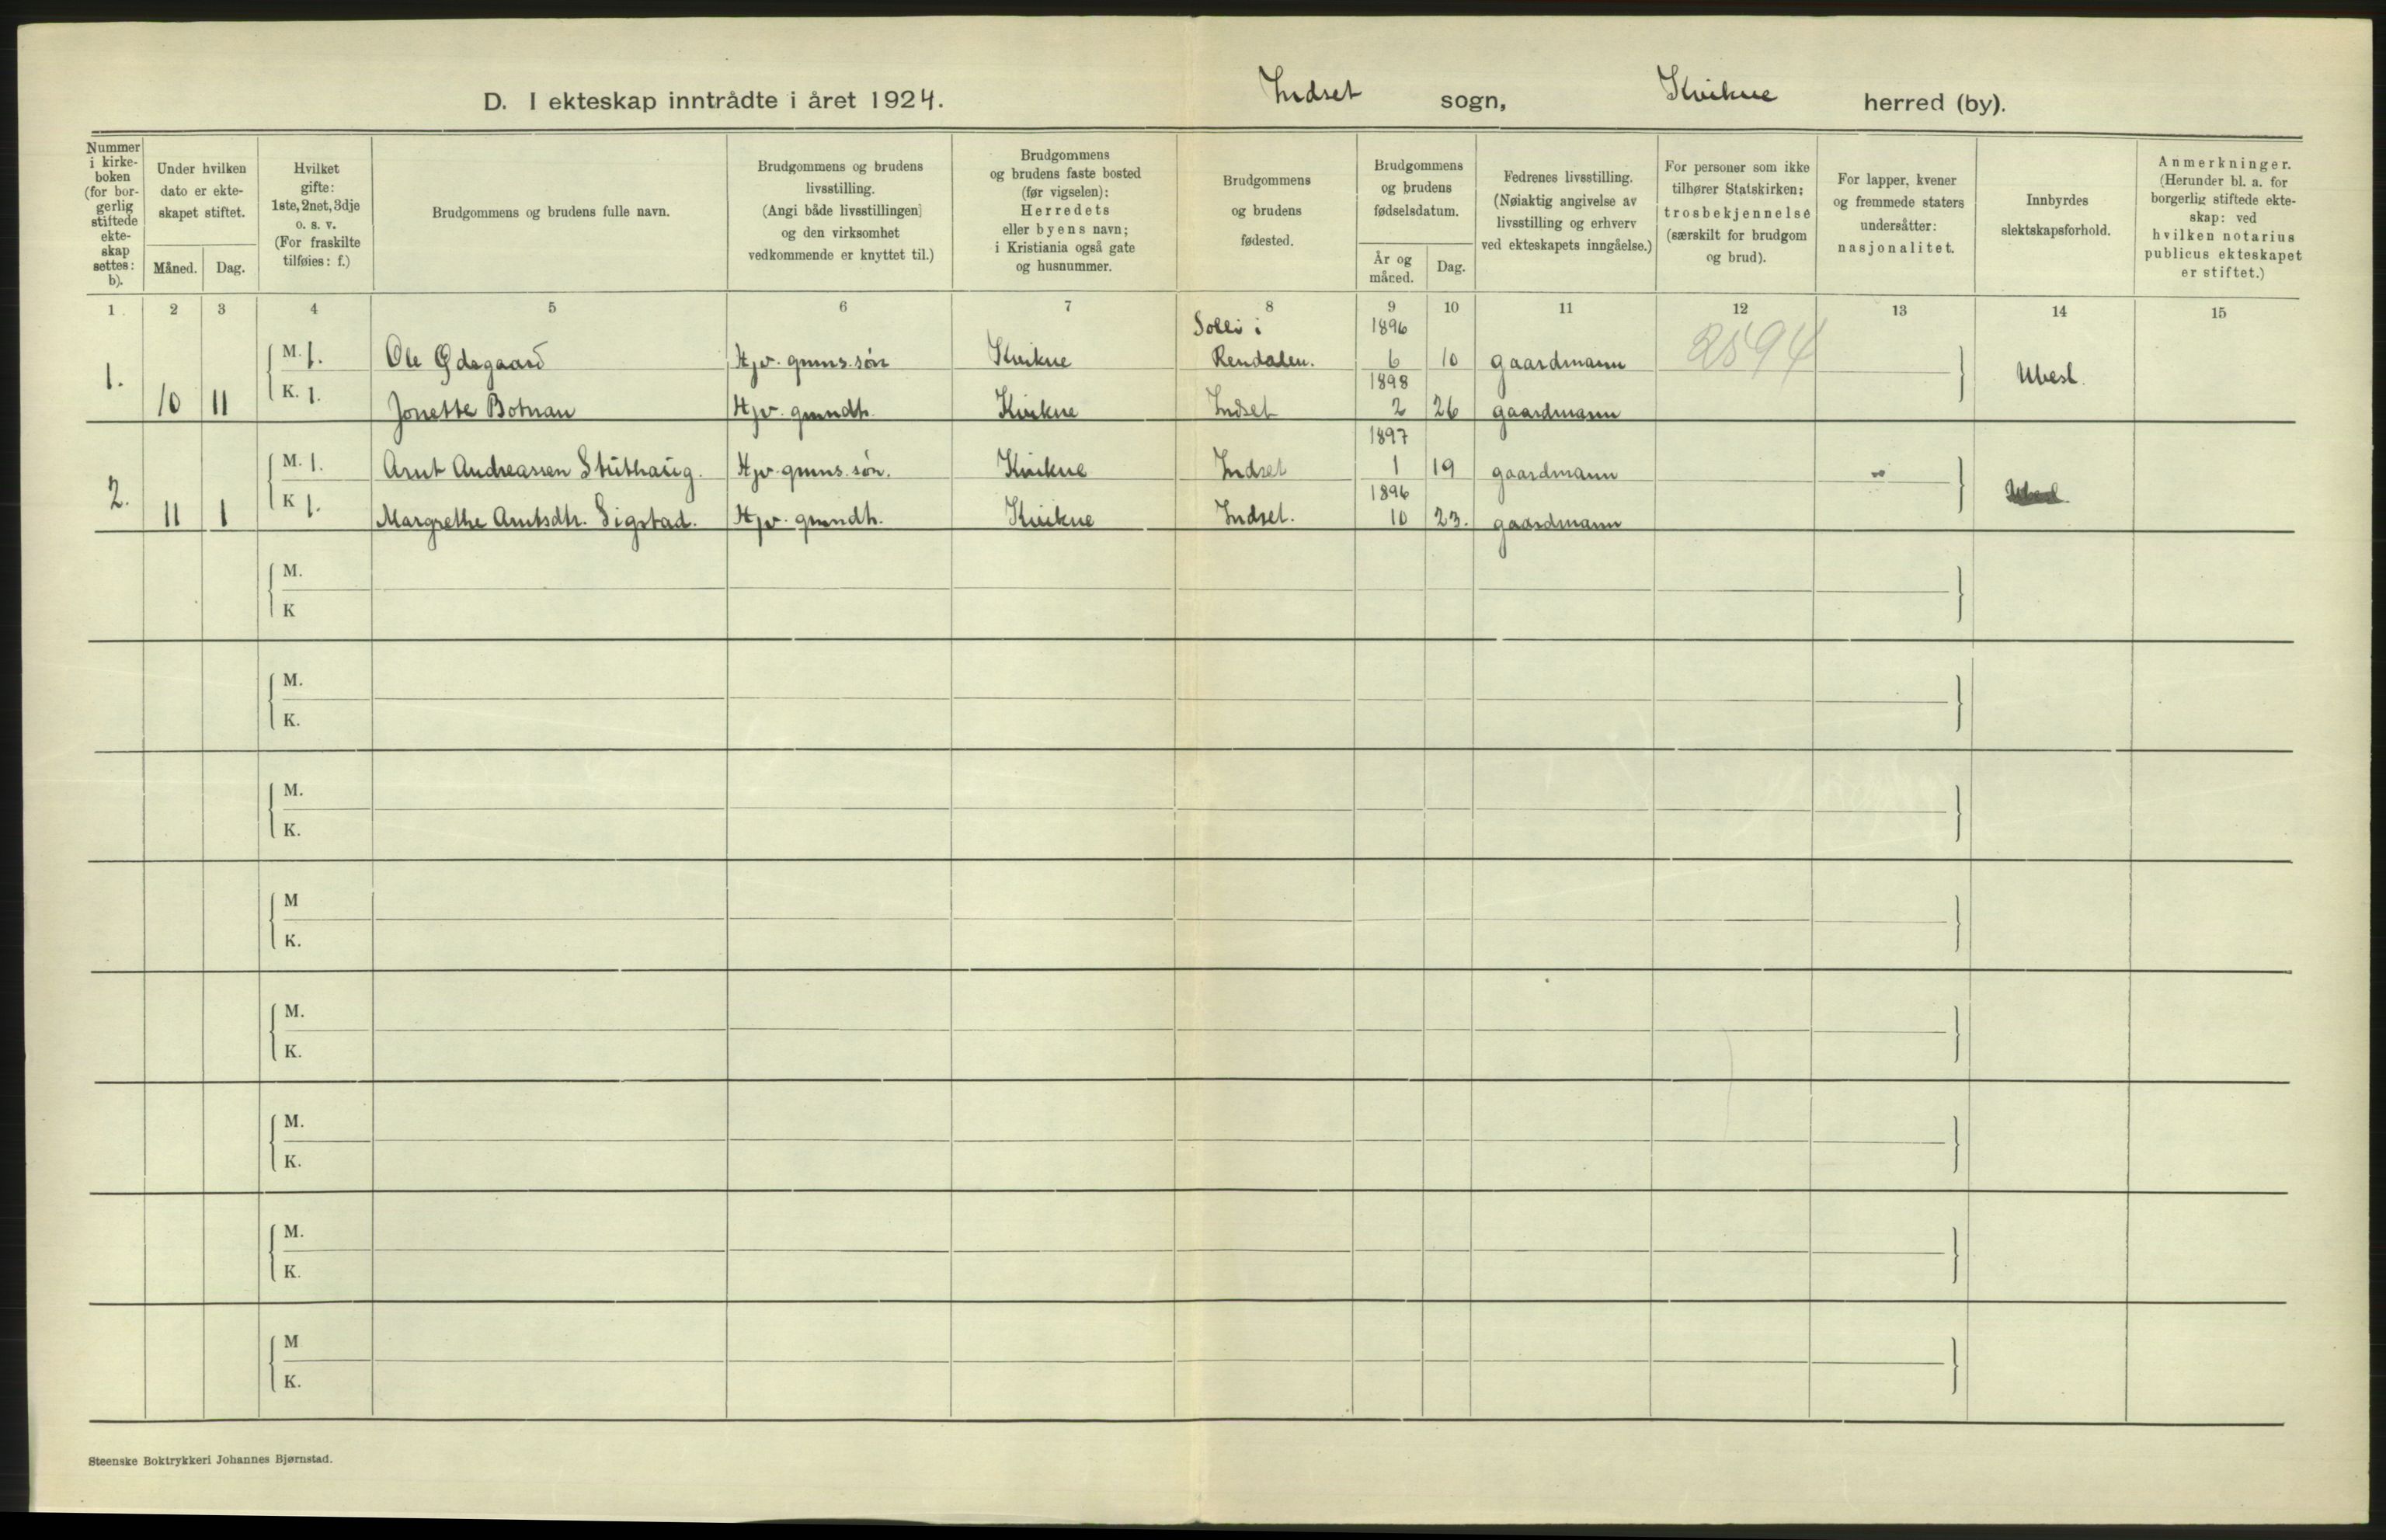 D. I ekteskap inntrådte i året 1924. Indset sogn, Kvikne herred (by).
Nummer i kirke-boken (for bor-gerlig stiftede ekte-skap settes: b).
Under hvilken dato er ekte-skapet stiftet.
Måned. Dag.
Hvilket gifte: 1ste, 2net, 3dje o. s. v. (For fraskilte tilføies: f.)
Brudgommens og brudens fulle navn.
Brudgommens og brudens livsstilling. (Angi både livsstillingen og den virksomhet vedkommende er knyttet til.)
Brudgommens og brudens faste bosted (før vigselen): Herredets eller byens navn; i Kristiania også gate og husnummer.
Brudgommens og brudens fødested.
Brudgommens og brudens fødselsdatum.
År og måned. Dag.
Fedrenes livsstilling. (Nøiaktig angivelse av livsstilling og erhverv ved ekteskapets inngåelse.)
For personer som ikke tilhører Statskirken: trosbekjennelse (særskilt for brudgom og brud).
For lapper, kvener og fremmede staters undersåtter: nasjonalitet.
Innbyrdes slektskapsforhold.
Anmerkninger. (Herunder bl. a. for borgerlig stiftede ekte-skap: ved hvilken notarius publicus ekteskapet er stiftet.)
1 2 3 4 5 6 7 8 9 10 11 12 13 14 15
1. 10 11
M. 1. Ole Ødegaard Hjv. grmns. søn Kvikne Solli i Rendalen. 1896 6 10 gaardmann 2594
K. 1. Jonette Botnan Hjv. grmndt. Kvikne Indset 1898 2 26 gaardmann
Ubesl.
2. 11 1
M. 1. Arnt Andreassen Stuthaug. Hjv. grmns. søn. Kvikne Indset 1897 1 19 gaardmann
K 1. Margrethe Arntsdtr. Sigstad. Hjv. grmndt. Kvikne Indset. 1896 10 23. gaardmann
M.
K
M.
K.
M.
K.
M
K.
M.
K.
M.
K.
M.
K.
M
K.
Steenske Boktrykkeri Johannes Bjørnstad.